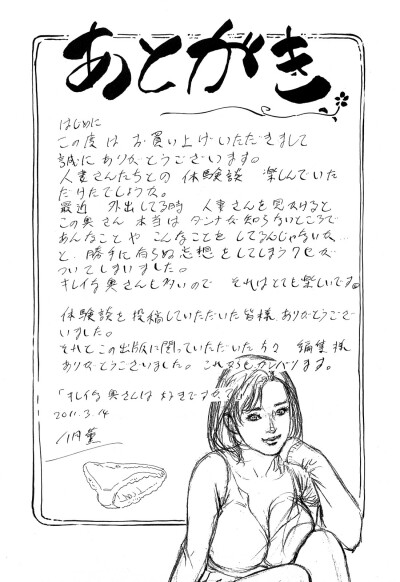 あとがき
はじめに
この度は お買い上げいただきまして
誠にありがとうございます。
人妻さんたちとの 体験談 楽しんでいた
だけたでしょうか。
最近 外出してる時 人妻さんを見かけると
この奥さん 本当は ダンナな知らないところで
あんなことや こんなことを してるんじゃないか…
と 勝手に有らぬ妄想をしてしまうクセが
ついてしまいました。
キレイな奥さんも多いので それはとても楽しいです。
体験談を投稿していただいた皆様 ありがとうござ
いました。
それとこの出版に関っていただいた方々 編集様
ありがとうございました。これからもガンバリます。
「キレイな奥さんは 好きですか?」
2011.3.14
八月薫